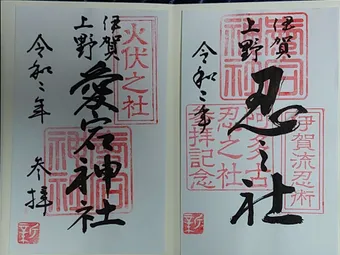 伊賀
上野
忍之社
令和二年
伊賀流忍術
阿多古
忍之社
参拝記念
伊賀
上野
愛宕神社
令和二年
参拝
火伏之社